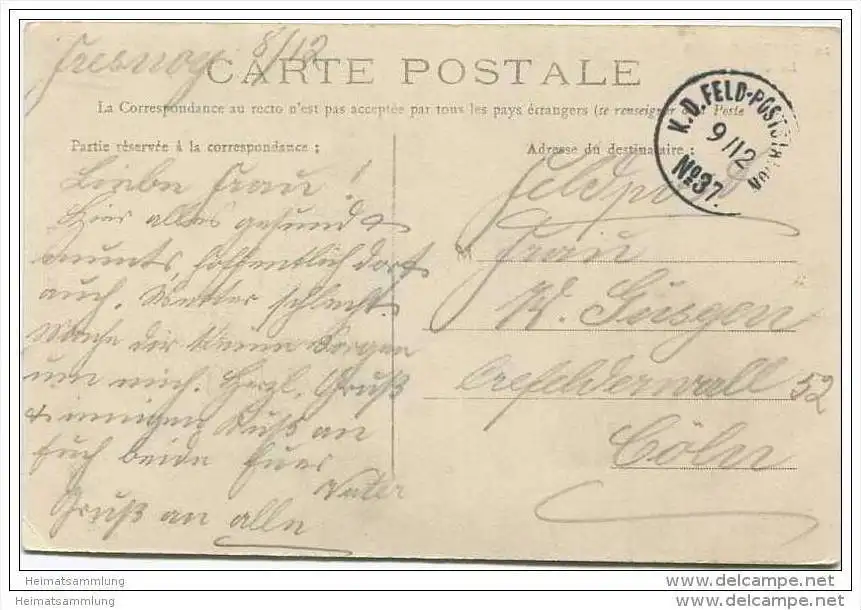 Fresnoy 8/12
CARTE POSTALE
La Correspondance au recto n'est pas acceptée par tous les pays étrangers (se renseigner à la Poste
Partie réservée à la correspondance ;
Adresse du destinataire ;
K.D. FELD-POSTSTATION
9/12
No 37.
Liebe Frau!
Hier alles gesund &
munter, hoffentlich dort
auch. Wetter schlecht.
Mache dir keine Sorgen
um mich. Herzl. Gruß
& innigen Kuß an
Euch beide Euer
Vater
Gruß an alle
Feldpost
M Frau
W. Güsgen
Crefelderwall 52
Cöln
Heimatsammlung
Heimatsammlung
www.delcampe.net
www.delcampe.net